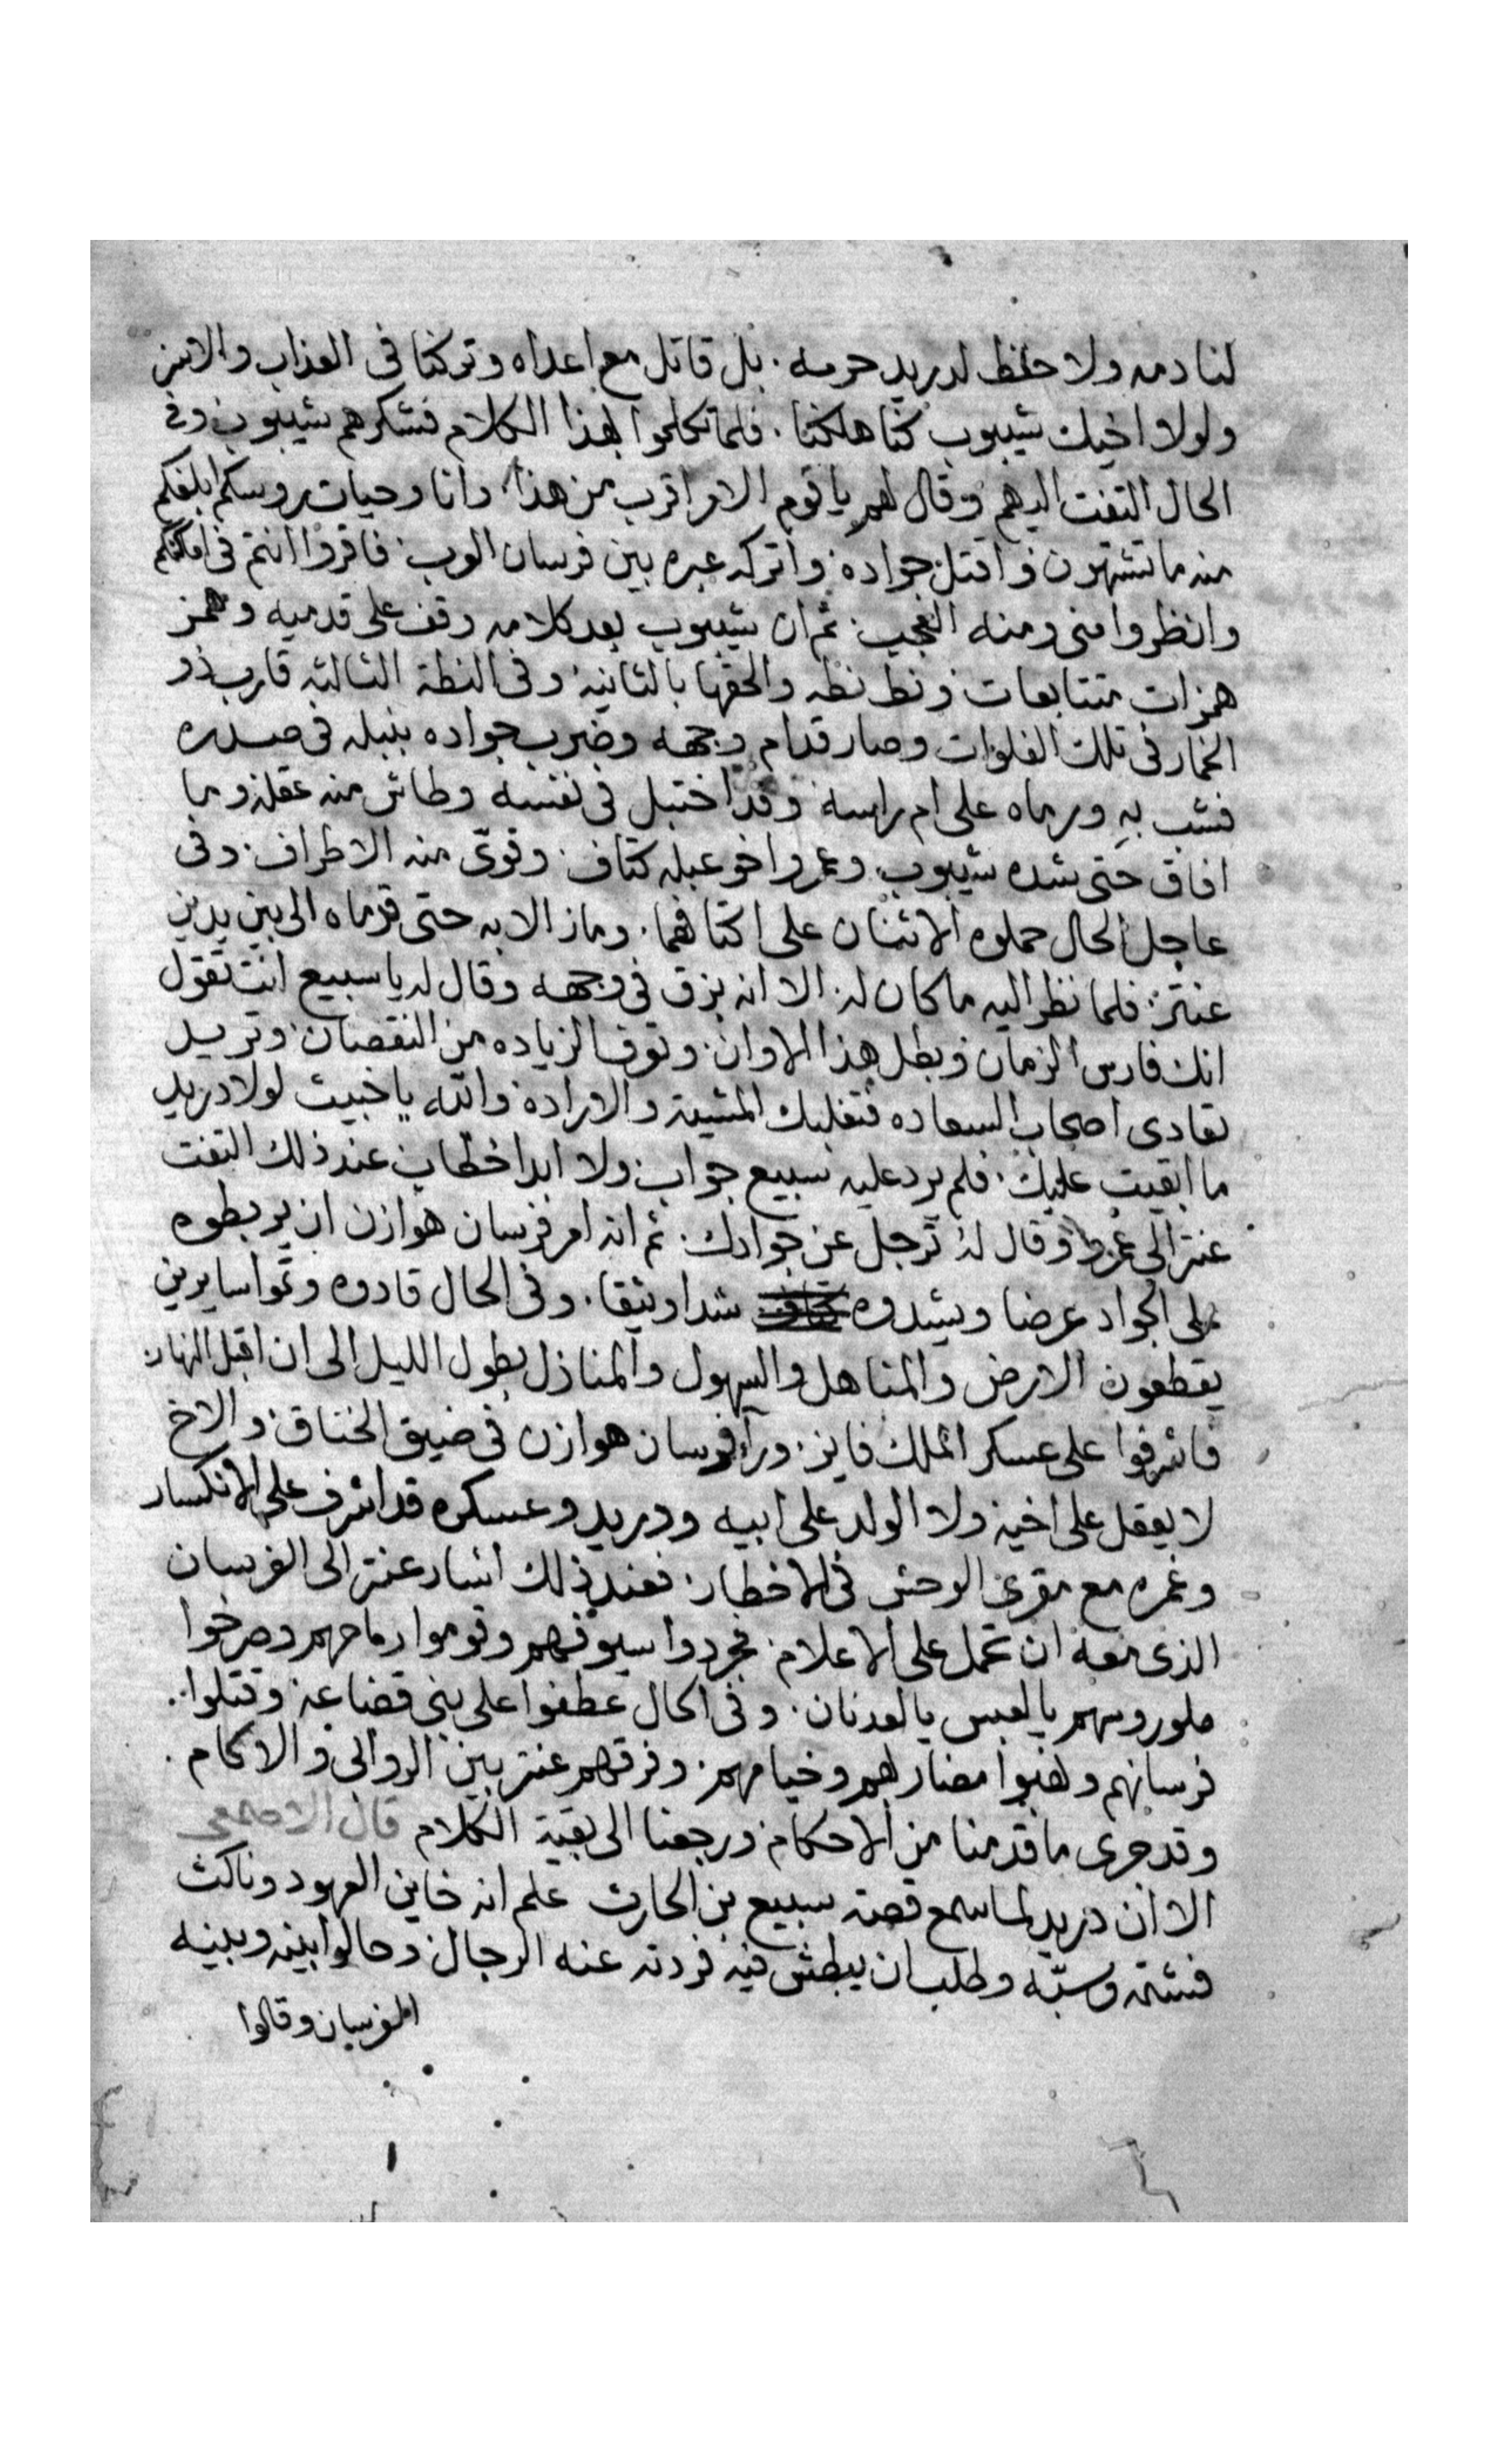 لنا دمه ولا حفظ لدريد حرمه . بل قاتل مع اعداه وتركنا في العذاب والانين
ولولا اخيك شيبوب كنا هلكنا . فلما تكلموا بهذا الكلام فشكرهم شيبوب وفي
الحال التفت اليهم وقال لهم يا قوم الامر اقرب من هذا وانا وحيات روسكم ابلغكم
منه ما تشتهون واقتل جواده واتركه عبره بين فرسان العرب فاقروا انتم في اماكنكم
وانظروا مني ومنه العجب ثم ان شيبوب بعد كلامه وقف على قدميه وهمز
همزات متتابعات ونط نطه والحقها بالثانيه وفي النطة الثالثه قارب ذو
الخمار في تلك الفلوات وصار قدام وجهه وضرب جواده بنبله في صدره
فشب به ورماه على ام راسه وقد اختبل في نفسه وطاش منه عقله وما
افاق حتى شده شيبوب وعمرو اخو عبله كتاف وقوى منه الاطراف وفي
عاجل الحال حملوه الاثنان على اكتافهما . وما زالا به حتى قدماه الى بين يدين
عنتر فلما نظر اليه ما كان له الا انه بزق في وجهه وقال له يا سبيع انت تقول
انك فارس الزمان وبطل هذا الاوان وتعرف الزياده من النقصان وتريد
تعادى اصحاب السعاده فتغلبك المشية والاراده والله يا خبيث لولا دريد
ما ابقيت عليك . فلم يرد عليه سبيع جواب ولا ابدا خطاب عند ذلك التفت
عنتر الى عمرو وقال له ترجل عن جوادك . ثم انه امر فرسان هوازن ان يربطوه
على الجواد عرضا ويشدوه شدا وثيقا . وفي الحال قادوه وتموا سايرين
يقطعون الارض والمناهل والسهول والمنازل بطول الليل الى ان اقبل النهار
فاشرفوا على عسكر الملك فايز . وراء فرسان هوازن في ضيق الخناق والاخ
لا يعقل على اخيه ولا الولد على ابيه ودريد وعسكره قد اشرف على الانكسار
وغمره مع مقرى الوحش في الاخطار فعند ذلك اشار عنتر الى الفرسان
الذي معه ان تحمل على الاعلام فجردوا سيوفهم وقوموا رماحهم وصرخوا
ملو روسهم يا لعبس يا لعدنان . وفي الحال عطفوا على بني قضاعه وقتلوا
فرسانهم ونهبوا مضاربهم وخيامهم . وفرقهم عنتر بين الروابي والاكام .
وقد جرى ما قدمنا من الاحكام ورجعنا الى بقية الكلام قال الاصمعي
الا ان دريد لما سمع قصة سبيع بن الحارث علم انه خاين العهود وناكث
فشتمه وسبّه وطلب ان يبطش فيه فردته عنه الرجال وحالوا بينه وبينه
الفرسان وقالوا